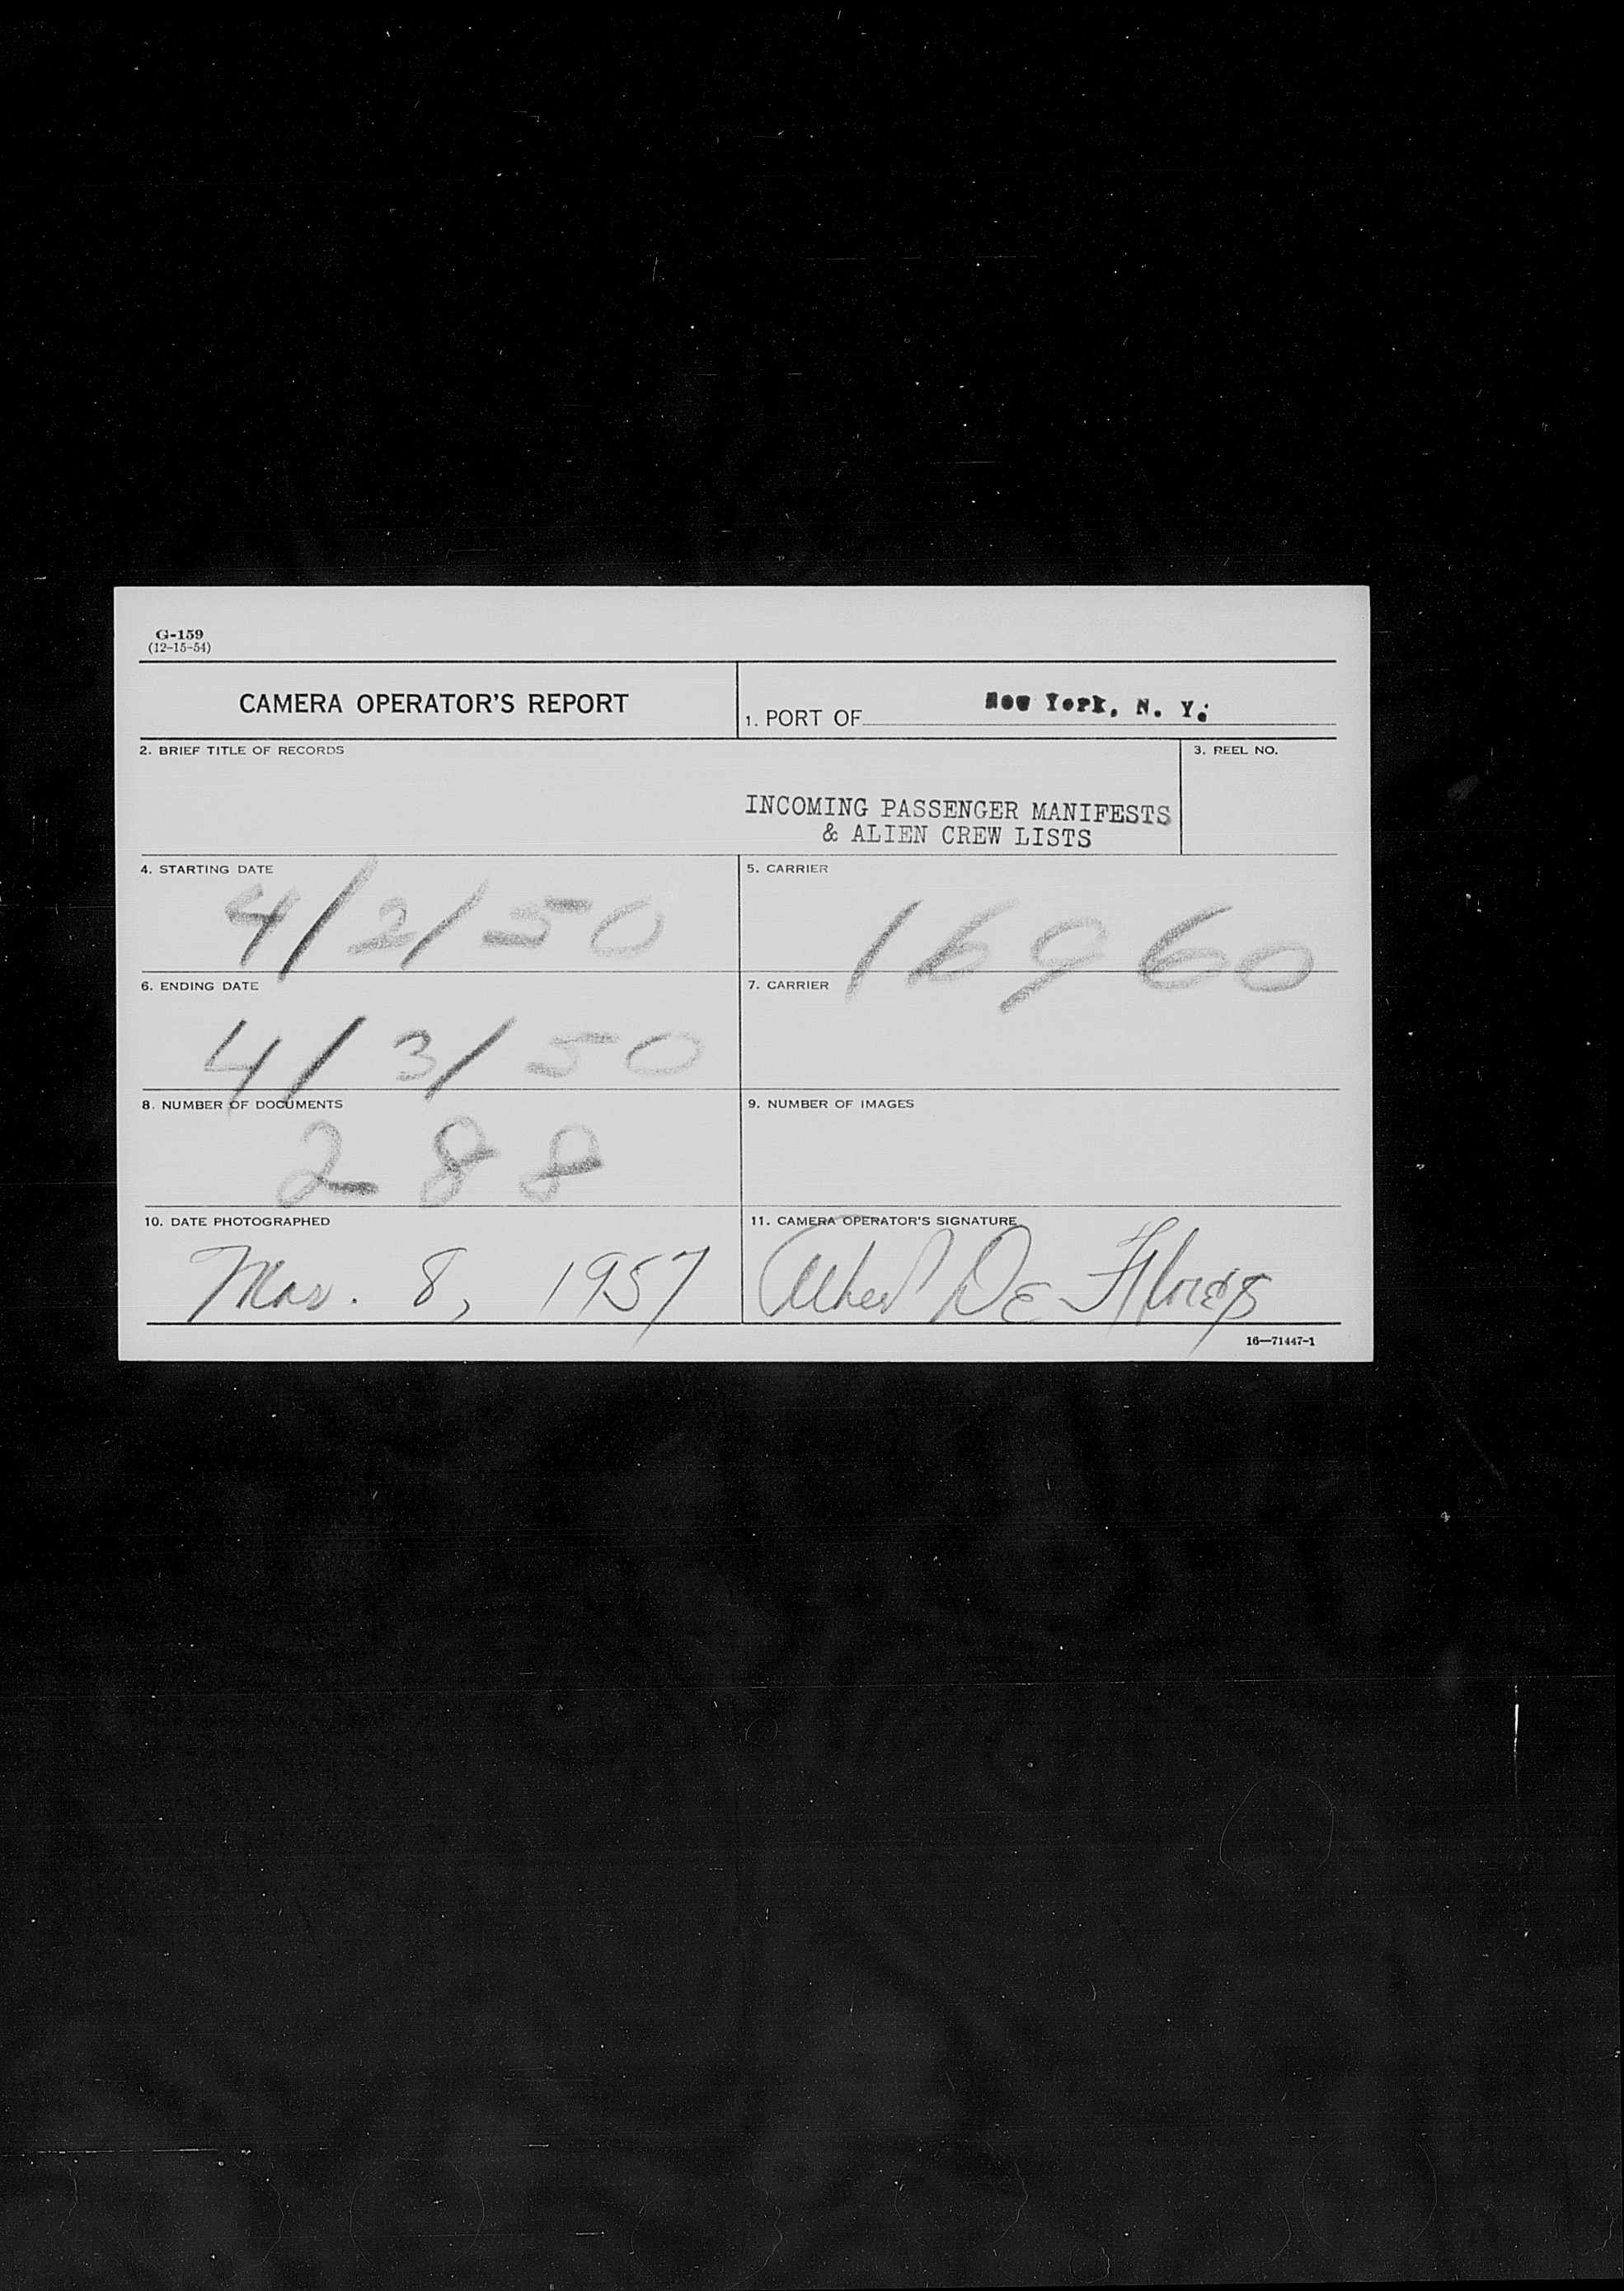 G-159
(12-15-54)
CAMERA OPERATOR'S REPORT
1. PORT OF New York, N. Y.
2. BRIEF TITLE OF RECORDS
3. REEL NO.
INCOMING PASSENGER MANIFESTS
& ALIEN CREW LISTS
4. STARTING DATE
4/2/50
5. CARRIER
16960
6. ENDING DATE
4/3/50
7. CARRIER
8. NUMBER OF DOCUMENTS
288
9. NUMBER OF IMAGES
10. DATE PHOTOGRAPHED
Mar. 8, 1957
11. CAMERA OPERATOR'S SIGNATURE
Albert De
16—71447-1